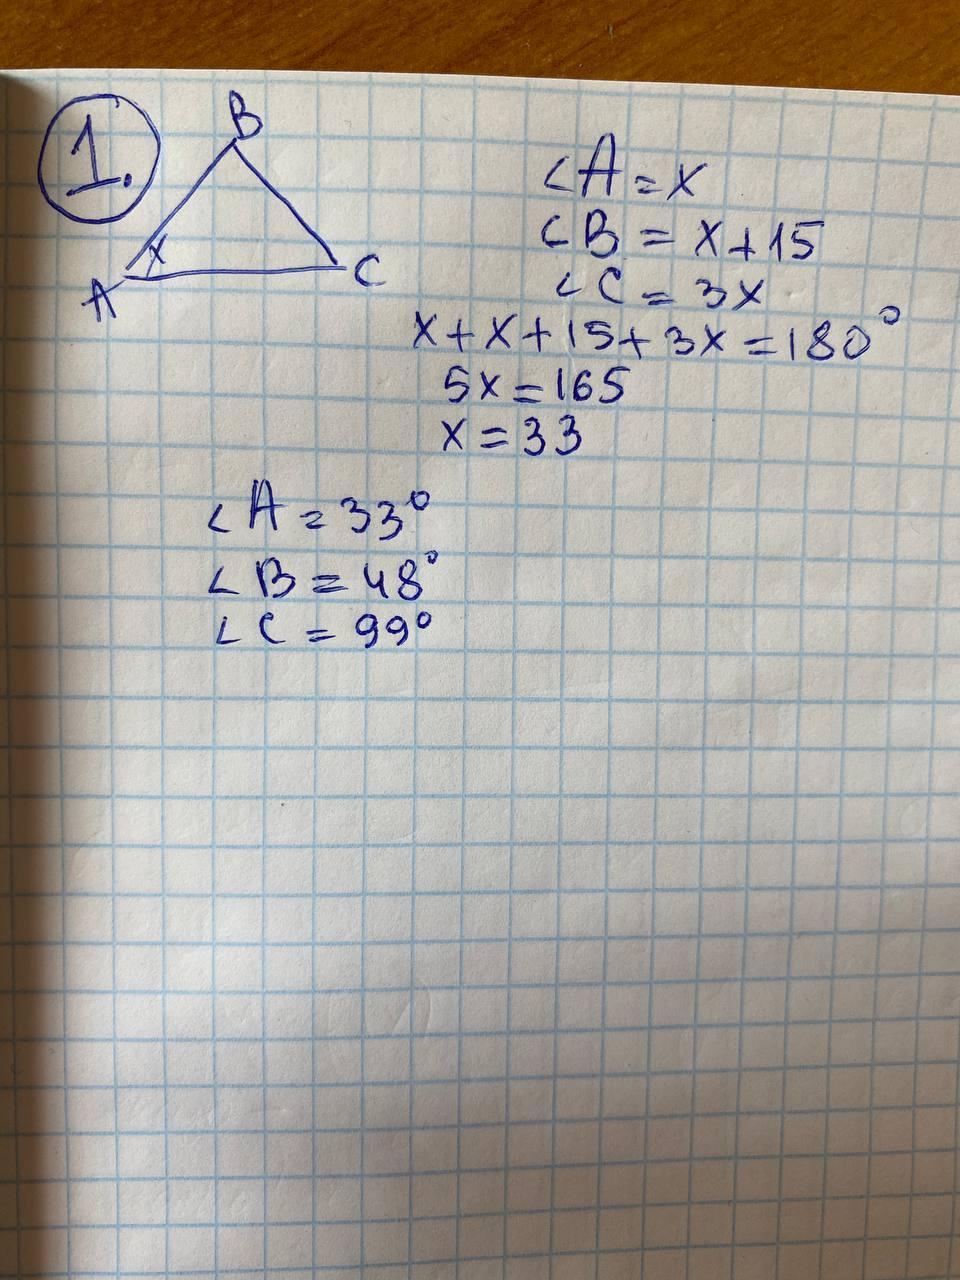 1.
B
x
A
C
∠A = x
∠B = x+15
∠C = 3x
x+x+15+3x=180°
5x=165
x=33
∠A = 33°
∠B = 48°
∠C = 99°